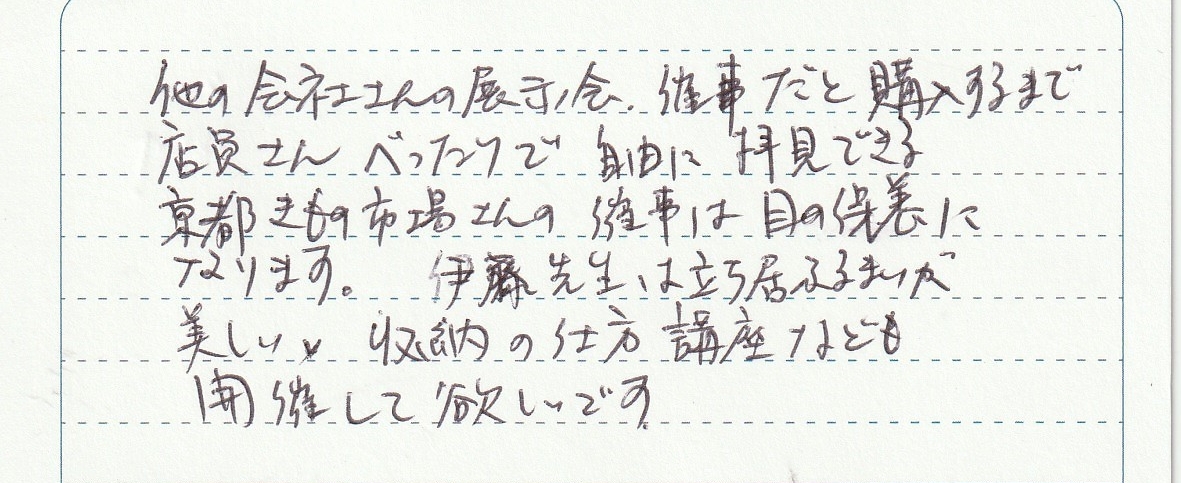 他の会社さんの展示会、催事だと購入するまで
店員さん べったりで 自由に 拝見できる
京都きもの市場さんの 催事は 目の保養に
なります。 伊藤先生は立ち居ふるまいが
美しい 収納の仕方 講座なども
開催して欲しいです。